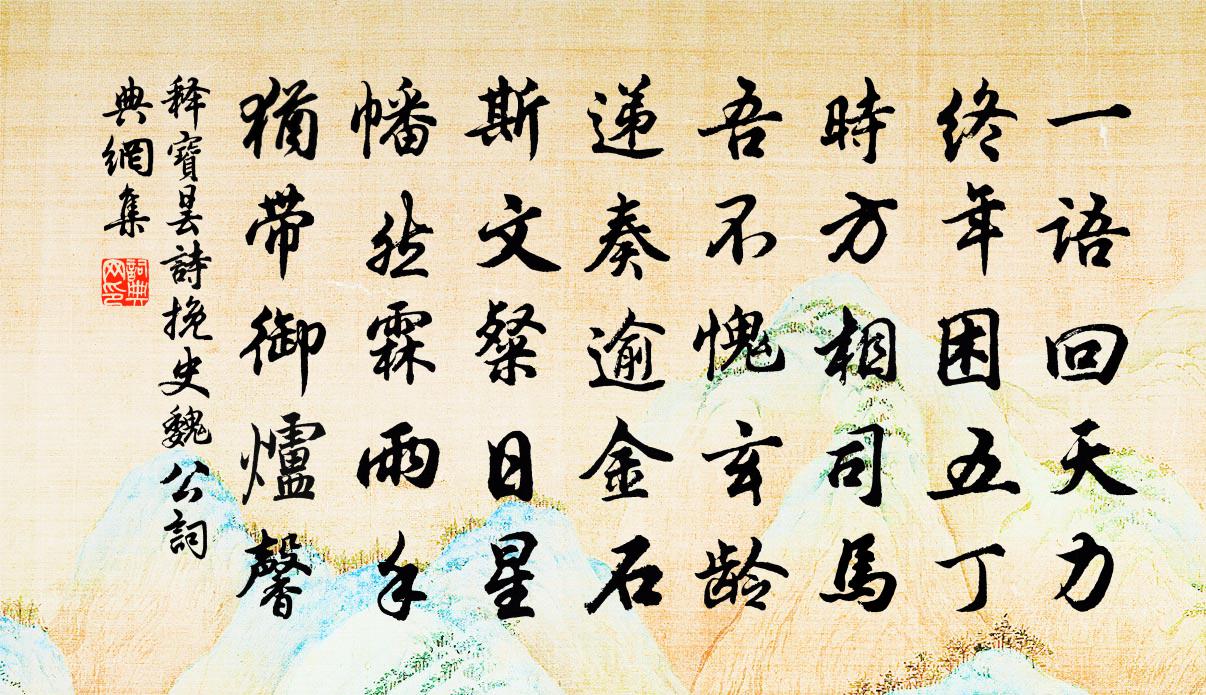 一语回天力
终年困五丁
時方相司馬
吾不愧玄龄
递奏逾金石
斯文粲日星
幡然霖雨手
猶带御爐馨
释寶昙詩挽史魏公詞
典網集
詞典网印